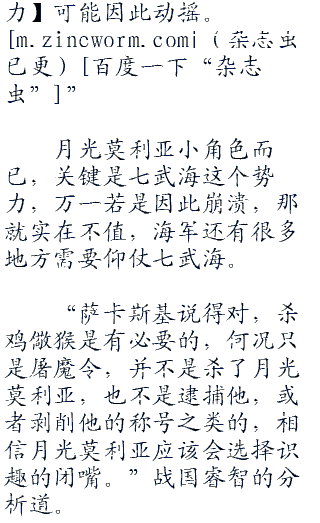 力】可能因此动摇。
[m.zincworm.com|（杂志虫
已更）[百度一下“杂志
虫”]”
月光莫利亚小角色而
已，关键是七武海这个势
力，万一若是因此崩溃，那
就实在不值，海军还有很多
地方需要仰仗七武海。
“萨卡斯基说得对，杀
鸡儆猴是有必要的，何况只
是屠魔令，并不是杀了月光
莫利亚，也不是逮捕他，或
者剥削他的称号之类的，相
信月光莫利亚应该会选择识
趣的闭嘴。”战国睿智的分
析道。